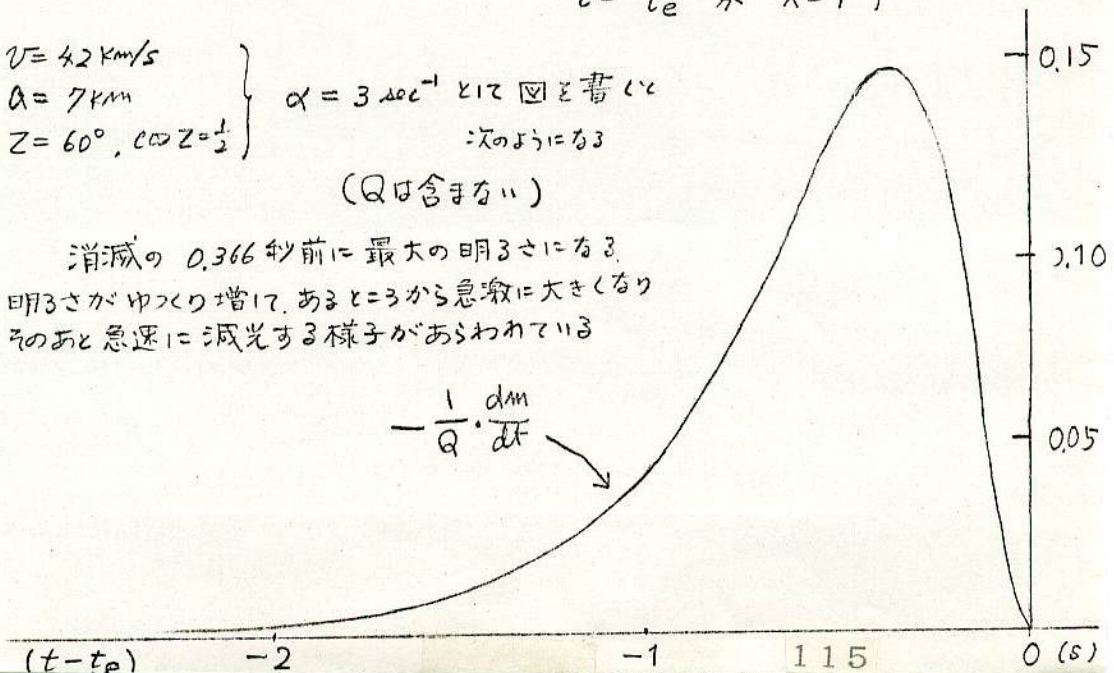 t = te
v = 42 km/s
a = 7 km
Z = 60°, cos Z = 1/2
α = 3 sec⁻¹ として 図を書くと
次のようになる
(Qは含まない)
消滅の 0.366 秒前に 最大の明るさになる.
明るさがゆっくり増して, あるところから急激に大きくなり
そのあと急速に減光する様子があらわれている
− 1/Q · dm/dt
0.15
0.10
0.05
(t−te) −2 −1 115 0 (s)